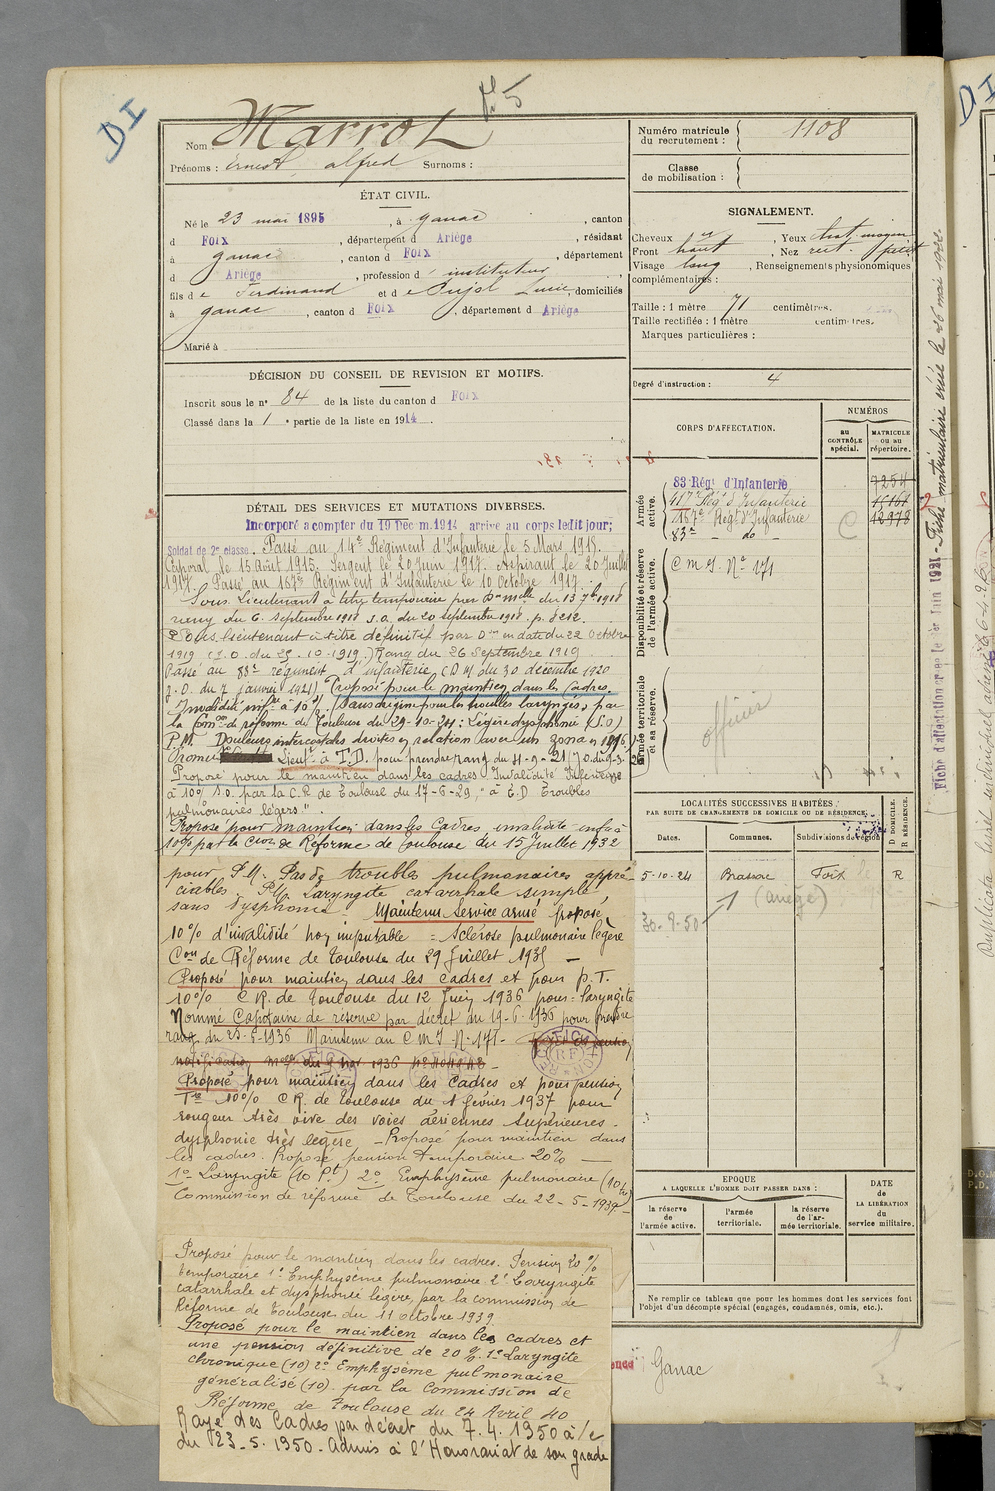 DI
Nom : Marrot
Prénoms : Ernest alfred Surnoms :
ÉTAT CIVIL.
Né le 23 mai 1895, à ganac, canton
d Foix, département d Ariège, résidant
à ganac, canton d Foix, département
d Ariège, profession d instituteur
fils de Ferdinand et de Pujol Lucie, domiciliés
à ganac, canton d Foix, département d Ariège
Marié à
DÉCISION DU CONSEIL DE REVISION ET MOTIFS.
Inscrit sous le nº 84 de la liste du canton d Foix
Classé dans la 1 e partie de la liste en 1914.
DÉTAIL DES SERVICES ET MUTATIONS DIVERSES.
Incorporé a compter du 19 Décem.1914 arrive au corps ledit jour;
Soldat de 2e classe. Passé au 14e Régiment d'Infanterie le 5 Mars 1915.
Caporal le 15 Août 1915. Sergent le 20 Juin 1917. Aspirant le 20 Juillet
1917. Passé au 157e Régiment d'Infanterie le 10 Octobre 1917.
Sous Lieutenant à titre temporaire par Don melle du 13 7bre 1918
rang du 6 septembre 1918 J.O. du 20 septembre 1918. p. 8212.
Sous-lieutenant à titre définitif par Don en date du 22 Octobre
1919 (J.O. du 25-10-1919.) Rang du 26 Septembre 1919
Passé au 83e régiment d'infanterie (D M du 30 décembre 1920
J.O. du 7 janvier 1921) Proposé pour le maintien dans les Cadres.
Invalidité infre à 10% (sans régime pour les troubles laryngés) par
la Comon de réforme de Toulouse du 29-10-24: Légère dysphonie (S.O)
P.M. Douleurs intercostales droites en relation avec un zona en 1916.
Promu Lieutt à T.D. pour prendre rang du
Proposé pour le maintien dans les cadres Invalidité Inférieure
à 10% S.O. par la C.R. de Toulouse du 17-6-29, "à E.D Troubles
pulmonaires légers"
Proposé pour maintien dans les Cadres, invalidité infre
10% par la Cion de Réforme de Toulouse du 15 Juillet 1932
pour P.M. Pas de troubles pulmonaires appré-
ciables. P.M. Laryngite catarrhale simple
sans dysphonie. Maintenu Service armé proposé
10% d'invalidité non imputable = Sclérose pulmonaire légère
Con de Réforme de Toulouse du 29 Juillet 1935 —
Proposé pour maintien dans les cadres et pour p. T.
10% C R. de Toulouse du 12 Juin 1936 pour: laryngite
Nommé Capitaine de réserve par décret du 19-6-1936 pour prendre
rang du 25-6-1936 Maintenu au C M I N. 171 -
notification melle du 9 Nov 1936
Proposé pour maintien dans les Cadres et pour pension
Tre 10% C R. de Toulouse du 1 février 1937 pour
rougeur très vive des voies aériennes supérieures -
dysphonie très légère. - Proposé pour maintien dans
les cadres. Proposé pension temporaire 20% —
1º Laryngite (10 Pt) 2º Emphysème pulmonaire (10
Commission de réforme de Toulouse du 22-5-1939.-
Proposé pour le maintien dans les cadres. Pension 20%
temporaire 1º Emphysème pulmonaire 2º Laryngite
catarrhale et dysphonie légère, par la commission de
Réforme de Toulouse du 11 octobre 1939
Proposé pour le maintien dans les cadres et
une pension définitive de 20%. 1º Laryngite
chronique (10) 2º Emphysème pulmonaire
généralisé (10). par la Commission de
Réforme de Toulouse du 24 Avril 40
Rayé des Cadres par décret du 7.4.1950 à/c
du 23-5-1950. Admis à l'Honorariat de son grade
Numéro matricule
du recrutement : 1108
Classe
de mobilisation :
SIGNALEMENT.
Cheveux , Yeux
Front haut , Nez rect. petit
Visage long , Renseignements physionomiques
complémentaires :
Taille : 1 mètre 71 centimètres.
Taille rectifiée : 1 mètre centimètres.
Marques particulières :
Degré d'instruction : 4
CORPS D'AFFECTATION.
NUMÉROS
au CONTRÔLE spécial.
MATRICULE ou au répertoire.
Armée active.
83 Régt d'Infanterie 7254
157e Régt d'Infanterie 12978
83e - do -
C
Disponibilité et réserve de l'armée active.
C M I. No 171
Armée territoriale et sa réserve.
officier
LOCALITÉS SUCCESSIVES HABITÉES.
PAR SUITE DE CHANGEMENTS DE DOMICILE OU DE RÉSIDENCE.
Dates. Communes. Subdivisions de région
D DOMICILE. R RÉSIDENCE.
5-10-24 Brassac Foix R
(Ariège)
30-9-50
EPOQUE
A LAQUELLE L'HOMME DOIT PASSER DANS :
la réserve de l'armée active.
l'armée territoriale.
la réserve de l'armée territoriale.
DATE de LA LIBÉRATION du service militaire.
Ne remplir ce tableau que pour les hommes dont les services font
l'objet d'un décompte spécial (engagés, condamnés, omis, etc.).
Ganac
Fiche d'affectation créée le 1er Juin 1921 - Fiche matriculaire créée le 26 mai 1922.
DI